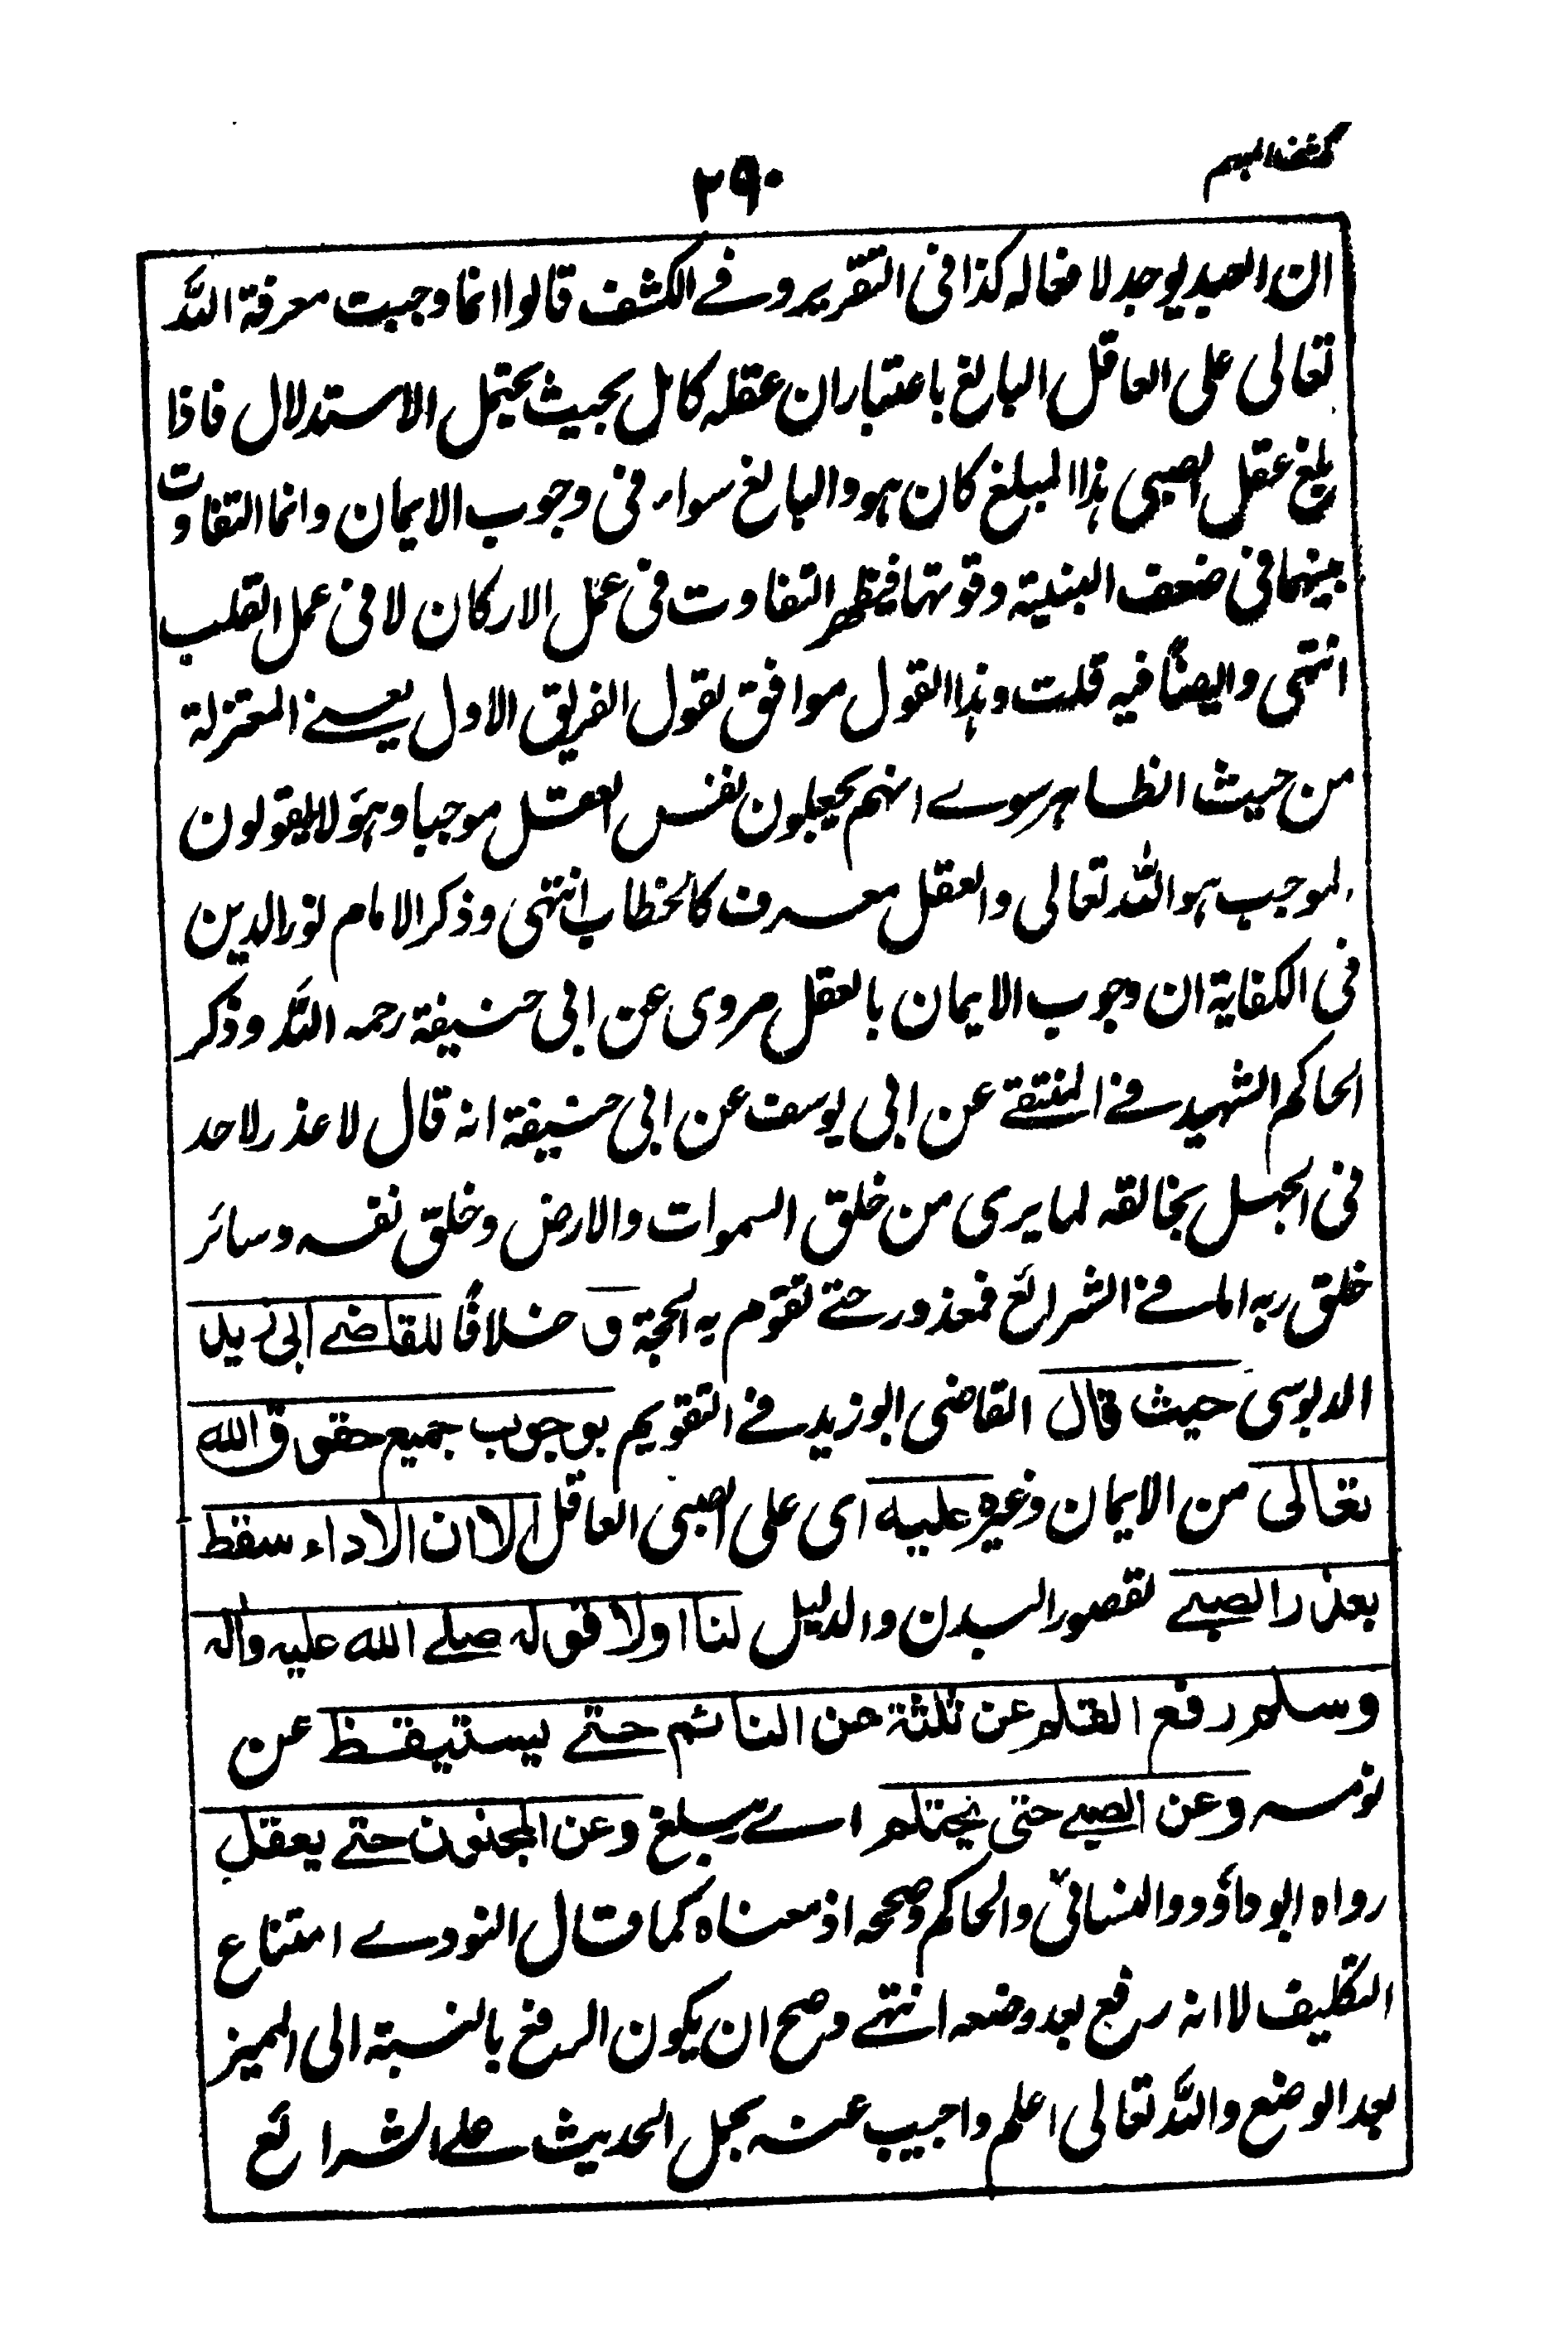 كشف المبهم
٢٩٠
ان العبد يوجد لافعاله كذا فى التقرير وفے الكشف قالوا انما وجبت معرفة اللہ
تعالى على العاقل البالغ باعتبار ان عقله كامل بحيث يحتمل الاستدلال فاذا
بلغ عقل الصبى هذا المبلغ كان هو والبالغ سواء فى وجوب الايمان وانما التفاوت
بينهما فى ضعف البنية وقوتها فيظهر التفاوت فى عمل الاركان لا فى عمل القلب
انتهى وايضاً فيه قلت وهذا القول موافق لقول الفريق الاول يعنے المعتزلة
من حيث الظاهر سوے انهم يجعلون نفس العقل موجبا وهؤلاء يقولون
الموجب هو الله تعالى والعقل معرف كالخطاب انتهى وذكر الامام نور الدين
فى الكفاية ان وجوب الايمان بالعقل مروى عن ابى حنيفة رحمه اللہ وذكر
الحاكم الشهيد فے المنتقے عن ابى يوسف عن ابى حنيفة انه قال لا عذر لاحد
فى الجهل بخالقه لما يرى من خلق السموات والارض وخلق نفسه وسائر
خلق ربه اما فے الشرائع فمعذور حتے تقوم به الحجة ق خلافًا للقاضے ابى زيد
الدبوسى حيث قال القاضى ابو زيد فے التقويم بوجوب جميع حقوق الله
تعالى من الايمان وغيره عليه اى على الصبى العاقل الا ان الاداء سقط
بعذر الصبے لقصور البدن والدليل لنا اولا قوله صلے الله عليه واٰله
وسلم رفع القلم عن ثلثة عن النائم حتے يستيقظ عن
نومه وعن الصبے حتى يحتلم اے يبلغ وعن المجنون حتے يعقل
رواه ابو داؤد والنسائى والحاكم وصححه اذ معناه كما قال النووے امتناع
التكليف لا انه رفع بعد وضعه انتهے وصح ان يكون الرفع بالنسبة الى المميز
بعد الوضع واللہ تعالى اعلم واجيب عنه بحمل الحديث علے الشرائع